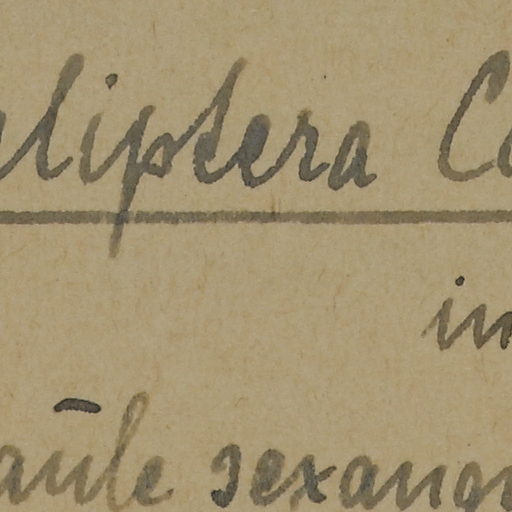 liptera Co
in
aule sexang